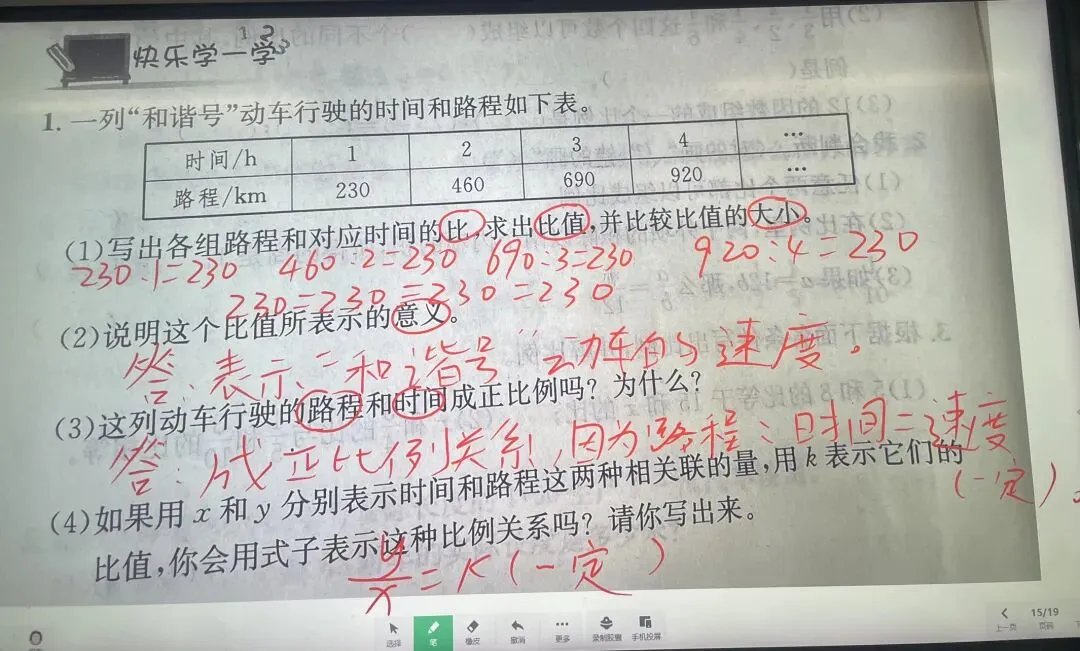 快乐学一学
1 2 3
1. 一列“和谐号”动车行驶的时间和路程如下表。
时间/h 1 2 3 4 …
路程/km 230 460 690 920 …
(1)写出各组路程和对应时间的比,求出比值,并比较比值的大小。
230:1=230 460:2=230 690:3=230 920:4=230
230=230=230=230
(2)说明这个比值所表示的意义。
答:表示“和谐号”动车的速度。
(3)这列动车行驶的路程和时间成正比例吗?为什么?
答:成正比例关系,因为路程:时间=速度
(一定)
(4)如果用 x 和 y 分别表示时间和路程这两种相关联的量,用 k 表示它们的
比值,你会用式子表示这种比例关系吗?请你写出来。
y/x=K(一定)
选择 笔 橡皮 撤消 更多 录制胶囊 手机投屏
上一页 15/19 页码